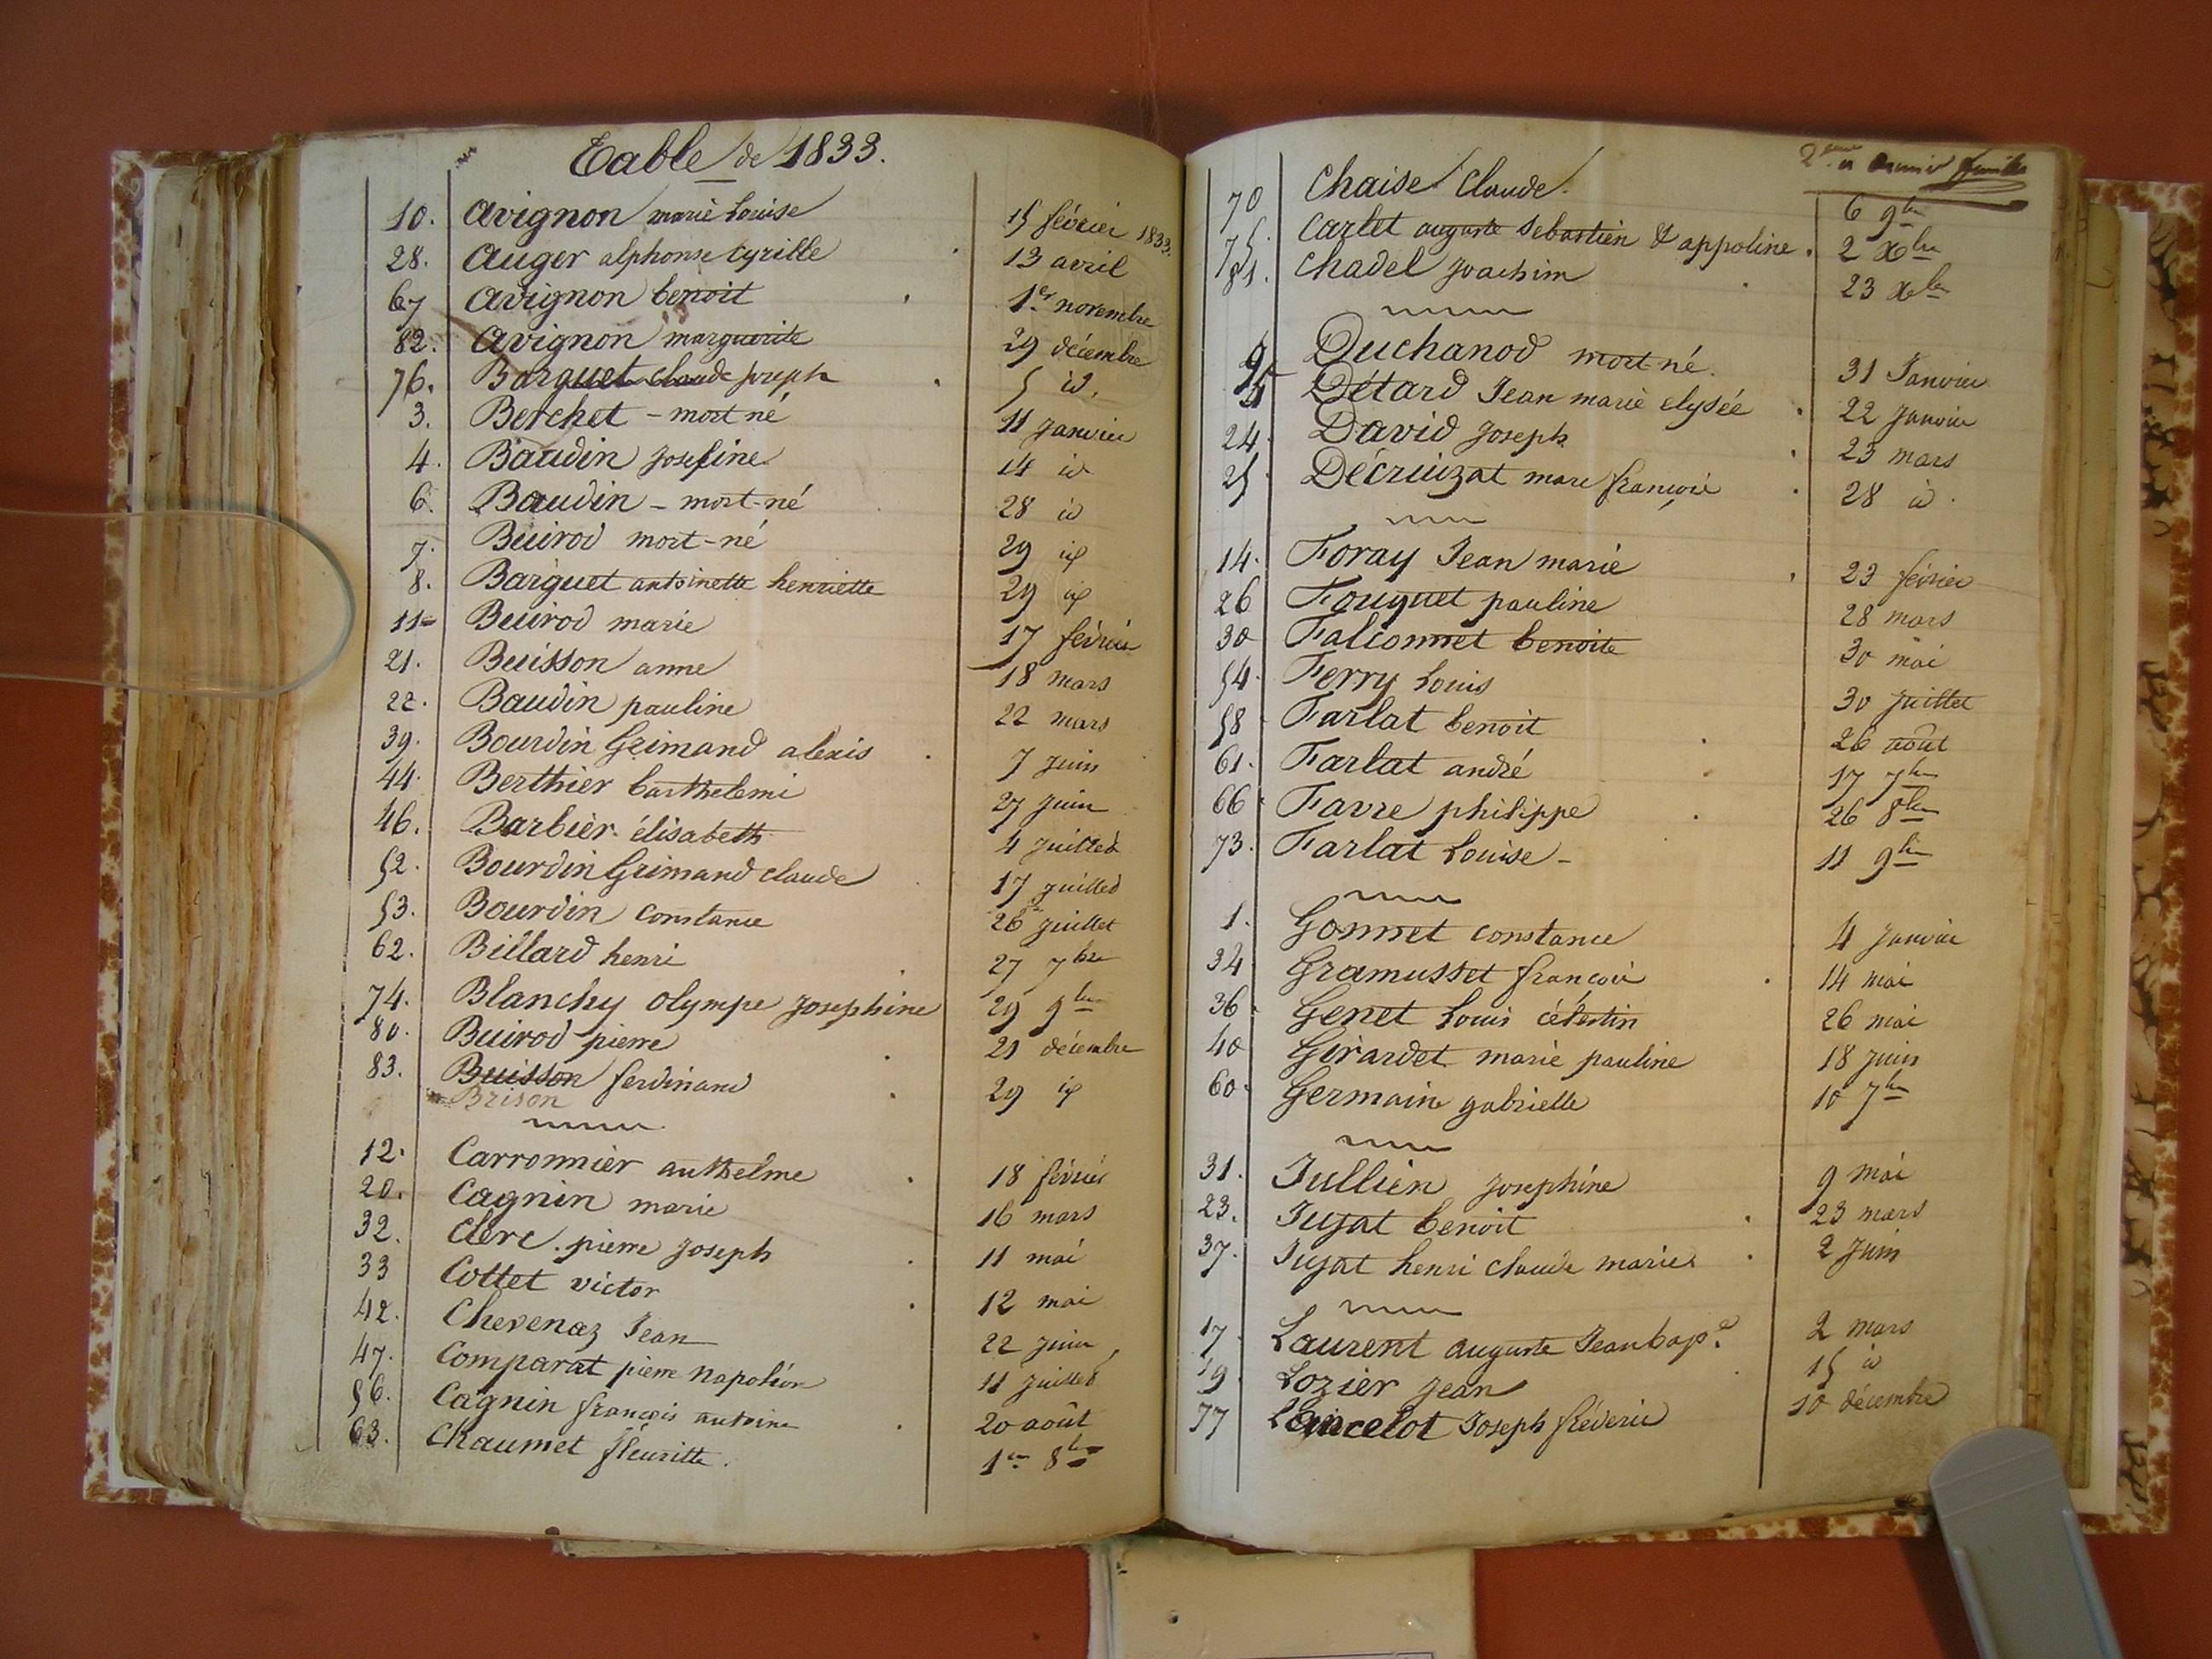 Table de 1833.
10. Avignon marie Louise 15 février 1833.
28. Auger alphonse Cyrille 13 avril
67 Avignon benoit 1er novembre
82. Avignon marguerite 29 décembre
76. Barguet claude joseph 5 id.
3. Berchet - mort né 11 janvier
4. Baudin josefine 14 id
6. Baudin - mort-né 28 id
7. Buirod mort-né 29 id
8. Barguet antoinette henriette 29 id
11 - Buirod marie 17 février
21. Buisson anne 18 mars
22. Baudin pauline 22 mars
39. Bourdin Grimand alexis 7 juin
44. Berthier barthelemi 27 juin
46. Barbier élisabeth 4 juillet
52. Bourdin Grimand claude 17 juillet
53. Bourdin Constance 26 juillet
62. Billard henri 27 7bre
74. Blanchy olympe josephine 29 9bre
80. Buirod pierre 21 décembre
83. Buisson ferdinand 29 id
Brison
12. Carronnier anthelme 18 février
20. Cagnin marie 16 mars
32. Clerc pierre joseph 11 mai
33 Cottet victor 12 mai
42. Chevenaz Jean 22 juin
47. Comparat pierre napoléon 11 juillet
56. Cagnin françois antoine 20 août
63. Chaumet fleuritte. 1er 8bre
2eme et dernier feuillet
70 Chaise Claude. 6 9bre
75. Carlet auguste Sebastien & appoline. 2 Xbre
81. Chadel joachim 23 Xbre
9 Duchanod mort-né. 31 Janvier
5 Détard Jean marie elysée 22 janvier
24. David joseph 23 mars
25. Décruizat marc françois 28 id.
14. Foray Jean marie 23 février
26 Fouguet pauline 28 mars
30 Falconnet benoite 30 mai
54. Ferry Louis 30 juillet
58 Farlat benoit 26 août
61. Farlat andré 17 7bre
66 Favre philippe 26 8bre
73. Farlat Louise - 11 9bre
1. Gonnet constance 4 janvier
34 Gramusset françois 14 mai
36 Genet Louis célestin 26 mai
40 Girardet marie pauline 18 juin
60. Germain gabrielle 10 7bre
31. Jullien josephine 9 mai
23. Jujat benoit 23 mars
37. Jujat henri claude marie 2 juin
17. Laurent auguste Jean bapte 2 mars
19. Lozier jean 15 id
77 Lancelot Joseph fréderic 10 décembre